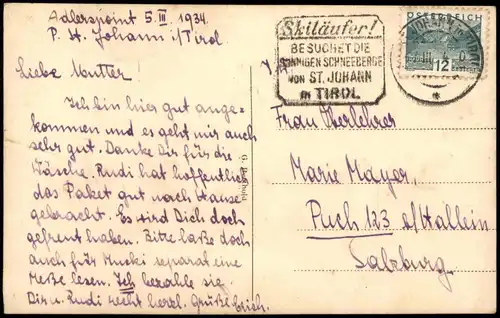 Adlerspoint 5. III. 1934.
P. St. Johann i/Tirol.
Liebe Mutter!
Ich bin hier gut ange-
kommen und es geht mir auch
sehr gut. Danke Dir für die
Wäsche. Rudi hat hoffentlich
das Paket gut nach Hause
gebracht. Es wird Dich doch
gefreut haben. Bitte laße doch
auch für Muski separat eine
Meße lesen. Ich bezahle sie.
Dir u. Rudi recht herzl. Grüße Erich.
Skiläufer!
BESUCHET DIE
SONNIGEN SCHNEEBERGE
VON ST. JOHANN
IN TIROL
ÖSTERREICH
12
Frau Oberlehrer
Marie Mayer,
Puch 123 b/Hallein
Salzburg